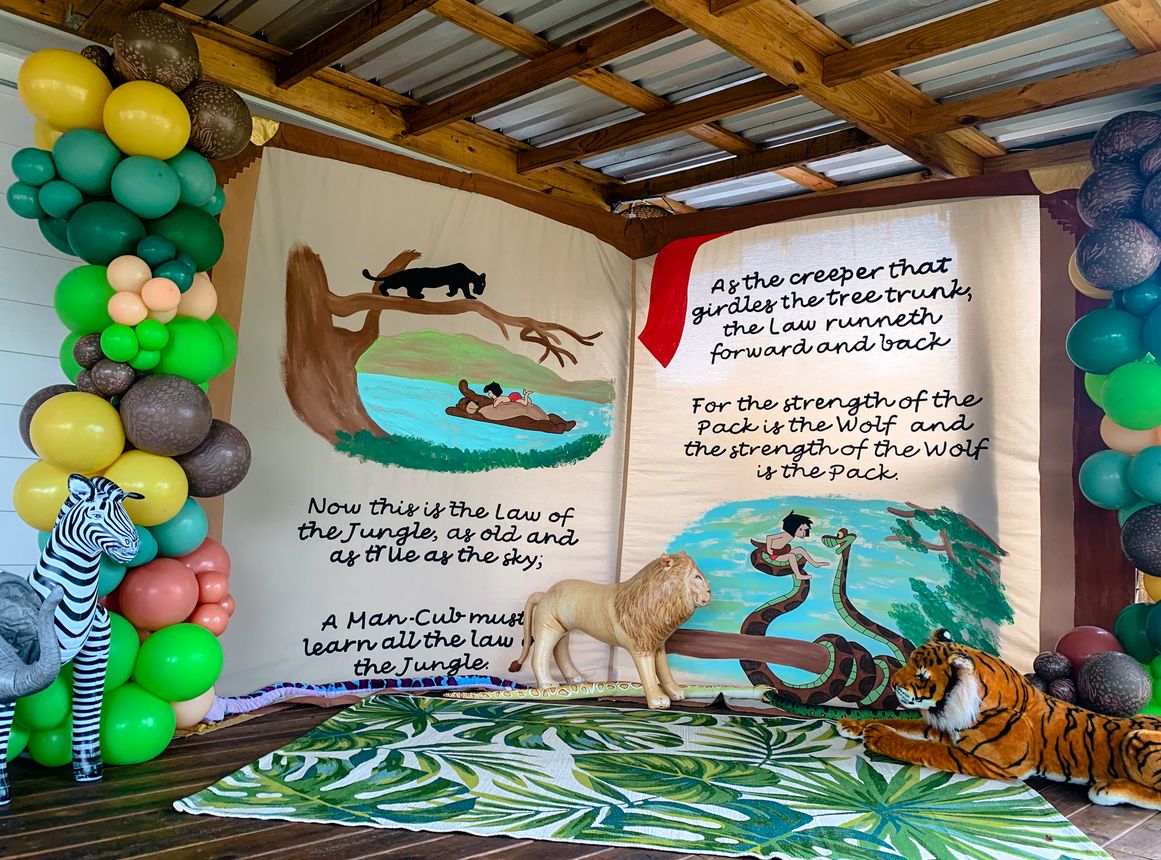 Now this is the Law of
the Jungle, as old and
as true as the sky;
A Man-Cub must
learn all the law
the Jungle.
As the creeper that
girdles the tree trunk,
the Law runneth
forward and back
For the strength of the
Pack is the Wolf and
the strength of the Wolf
is the Pack.